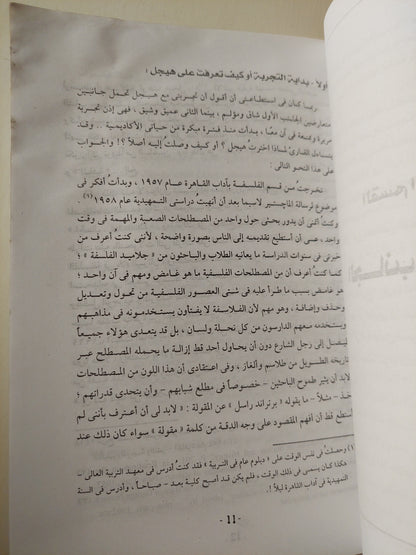 أولاً - بداية التجربة أو كيف تعرفت على هيجل ؟
ربما كان فى استطاعتى أن أقول أن تجربتى مع هيجل تحمل جانبين
متعارضين الجانب الأول شاق ومؤلم ، بينما الثانى عميق وشيق ، فهى إذن تجربة
مريرة وممتعة فى آن معاً ، بدأت منذ فترة مبكرة من حياتى الأكاديمية .. وقد
يتساءل القارئ لماذا اخترت هيجل ؟ أو كيف وصلت إليه أصلاً ؟! والجواب
على هذا النحو التالى :
تخرجت من قسم الفلسفة بآداب القاهرة عام ١٩٥٧ ، وبدأت أفكر فى
موضوع لرسالة الماچستير لاسيما بعد أن أنهيت دراستى التمهيدية عام ١٩٥٨ (١)
وكنت أتمنى أن يدور بحثى حول واحد من المصطلحات الصعبة والمهمة فى وقت
واحد ، عسى أن أستطيع تقديمه إلى الناس بصورة واضحة ، لأننى كنت أعرف من
خبرتى فى سنوات الدراسة ما يعانيه الطلاب والباحثون من « جلاميد الفلسفة » ؛
كما كنت أعرف أن من المصطلحات الفلسفية ما هو غامض ومهم فى آن واحد ؛
هو غامض بسبب ما طرأ عليه فى شتى العصور الفلسفية من تحول وتعديل
وحذف وإضافة ، وهو مهم لأن الفلاسفة لا يفتأون يستخدمونه فى مذاهبهم
ويستخدمه معهم الدارسون من كل نحلة ولسان ، بل قد يتعدى هؤلاء جميعاً
ليصل إلى رجل الشارع دون أن يحاول أحد قط إزالة ما يحمله المصطلح عبر
تاريخه الطويل من طلاسم وألغاز ، وفى اعتقادى أن هذا اللون من المصطلحات
لابد أن يثير طموح الباحثين - خصوصاً فى مطلع شبابهم - وأن يتحدى قدراتهم ؛
خذ - مثلاً - ما يقوله « برتراند راسل » عن المقولة : « لابد لى أن أعترف بأننى لم
أستطع قط أن أفهم المقصود على وجه الدقة من كلمة « مقولة » سواء كان ذلك عند
(١) وحصلت فى نفس الوقت على « دبلوم عام فى التربية » فقد كنت أدرس فى معهد التربية العالى -
هكذا كان يسمى فى ذلك الوقت ، فلم يكن قد أصبح كلية بعد - صباحاً ، وأدرس فى السنة
التمهيدية فى آداب القاهرة ليلاً !.
- 11 -